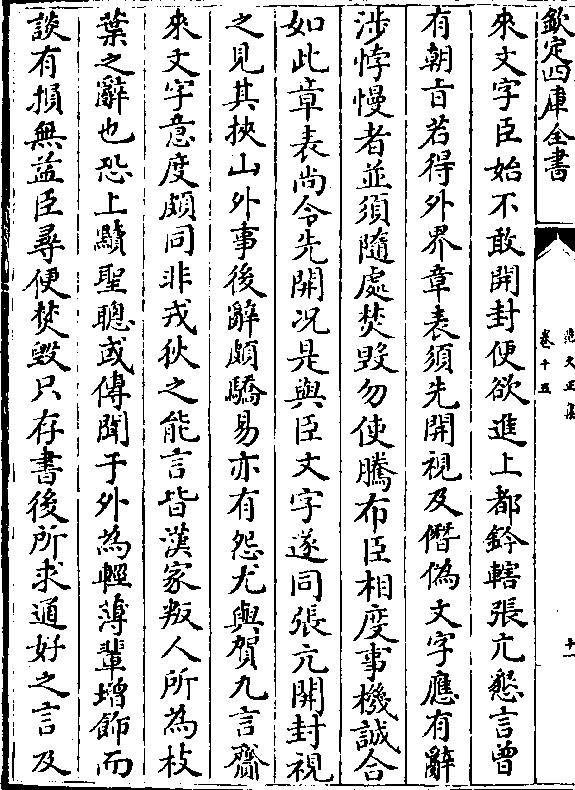 欽定四庫全書
范文正集
卷十五
十一
來文字臣始不敢開封便欲進上都鈐轄張亢懇言曾
有朝旨若得外界章表須先開視及僭偽文字應有辭
涉悖慢者並須隨處焚毀勿使騰布臣相度事機誠合
如此章表尚令先開况是與臣文字遂同張亢開封視
之見其挾山外事後辭頗驕易亦有怨尤與賀九言齎
來文字意度頗同非戎狄之能言皆漢家叛人所為枝
葉之辭也恐上黷聖聰或傳聞于外為輕薄輩增飾而
談有損無益臣尋便焚毀只存書後所求通好之言及